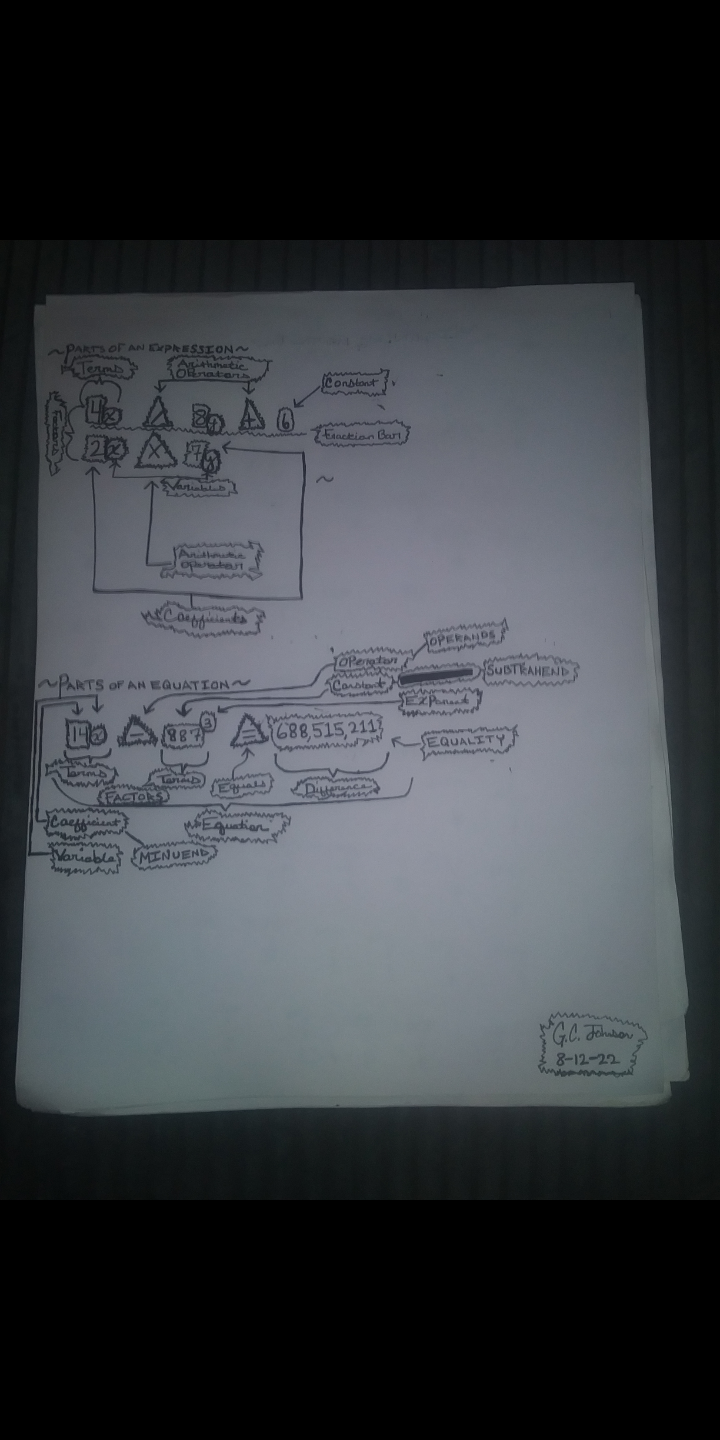 ~PARTS OF AN EXPRESSION~
Terms
Arithmetic
Operators
Constant
4x / 8y + 6
Fraction Bar
2x X 7y
Variables
~
Arithmetic
Operator
Coefficients
OPERANDS
Operator
~PARTS OF AN EQUATION~
Constant
SUBTRAHEND
Exponent
14x - 887³ = 688,515,211
EQUALITY
Terms
Terms
Equals
Difference
FACTORS
Coefficient
Equation
Variable
MINUEND
G.C. Johnson
8-12-22